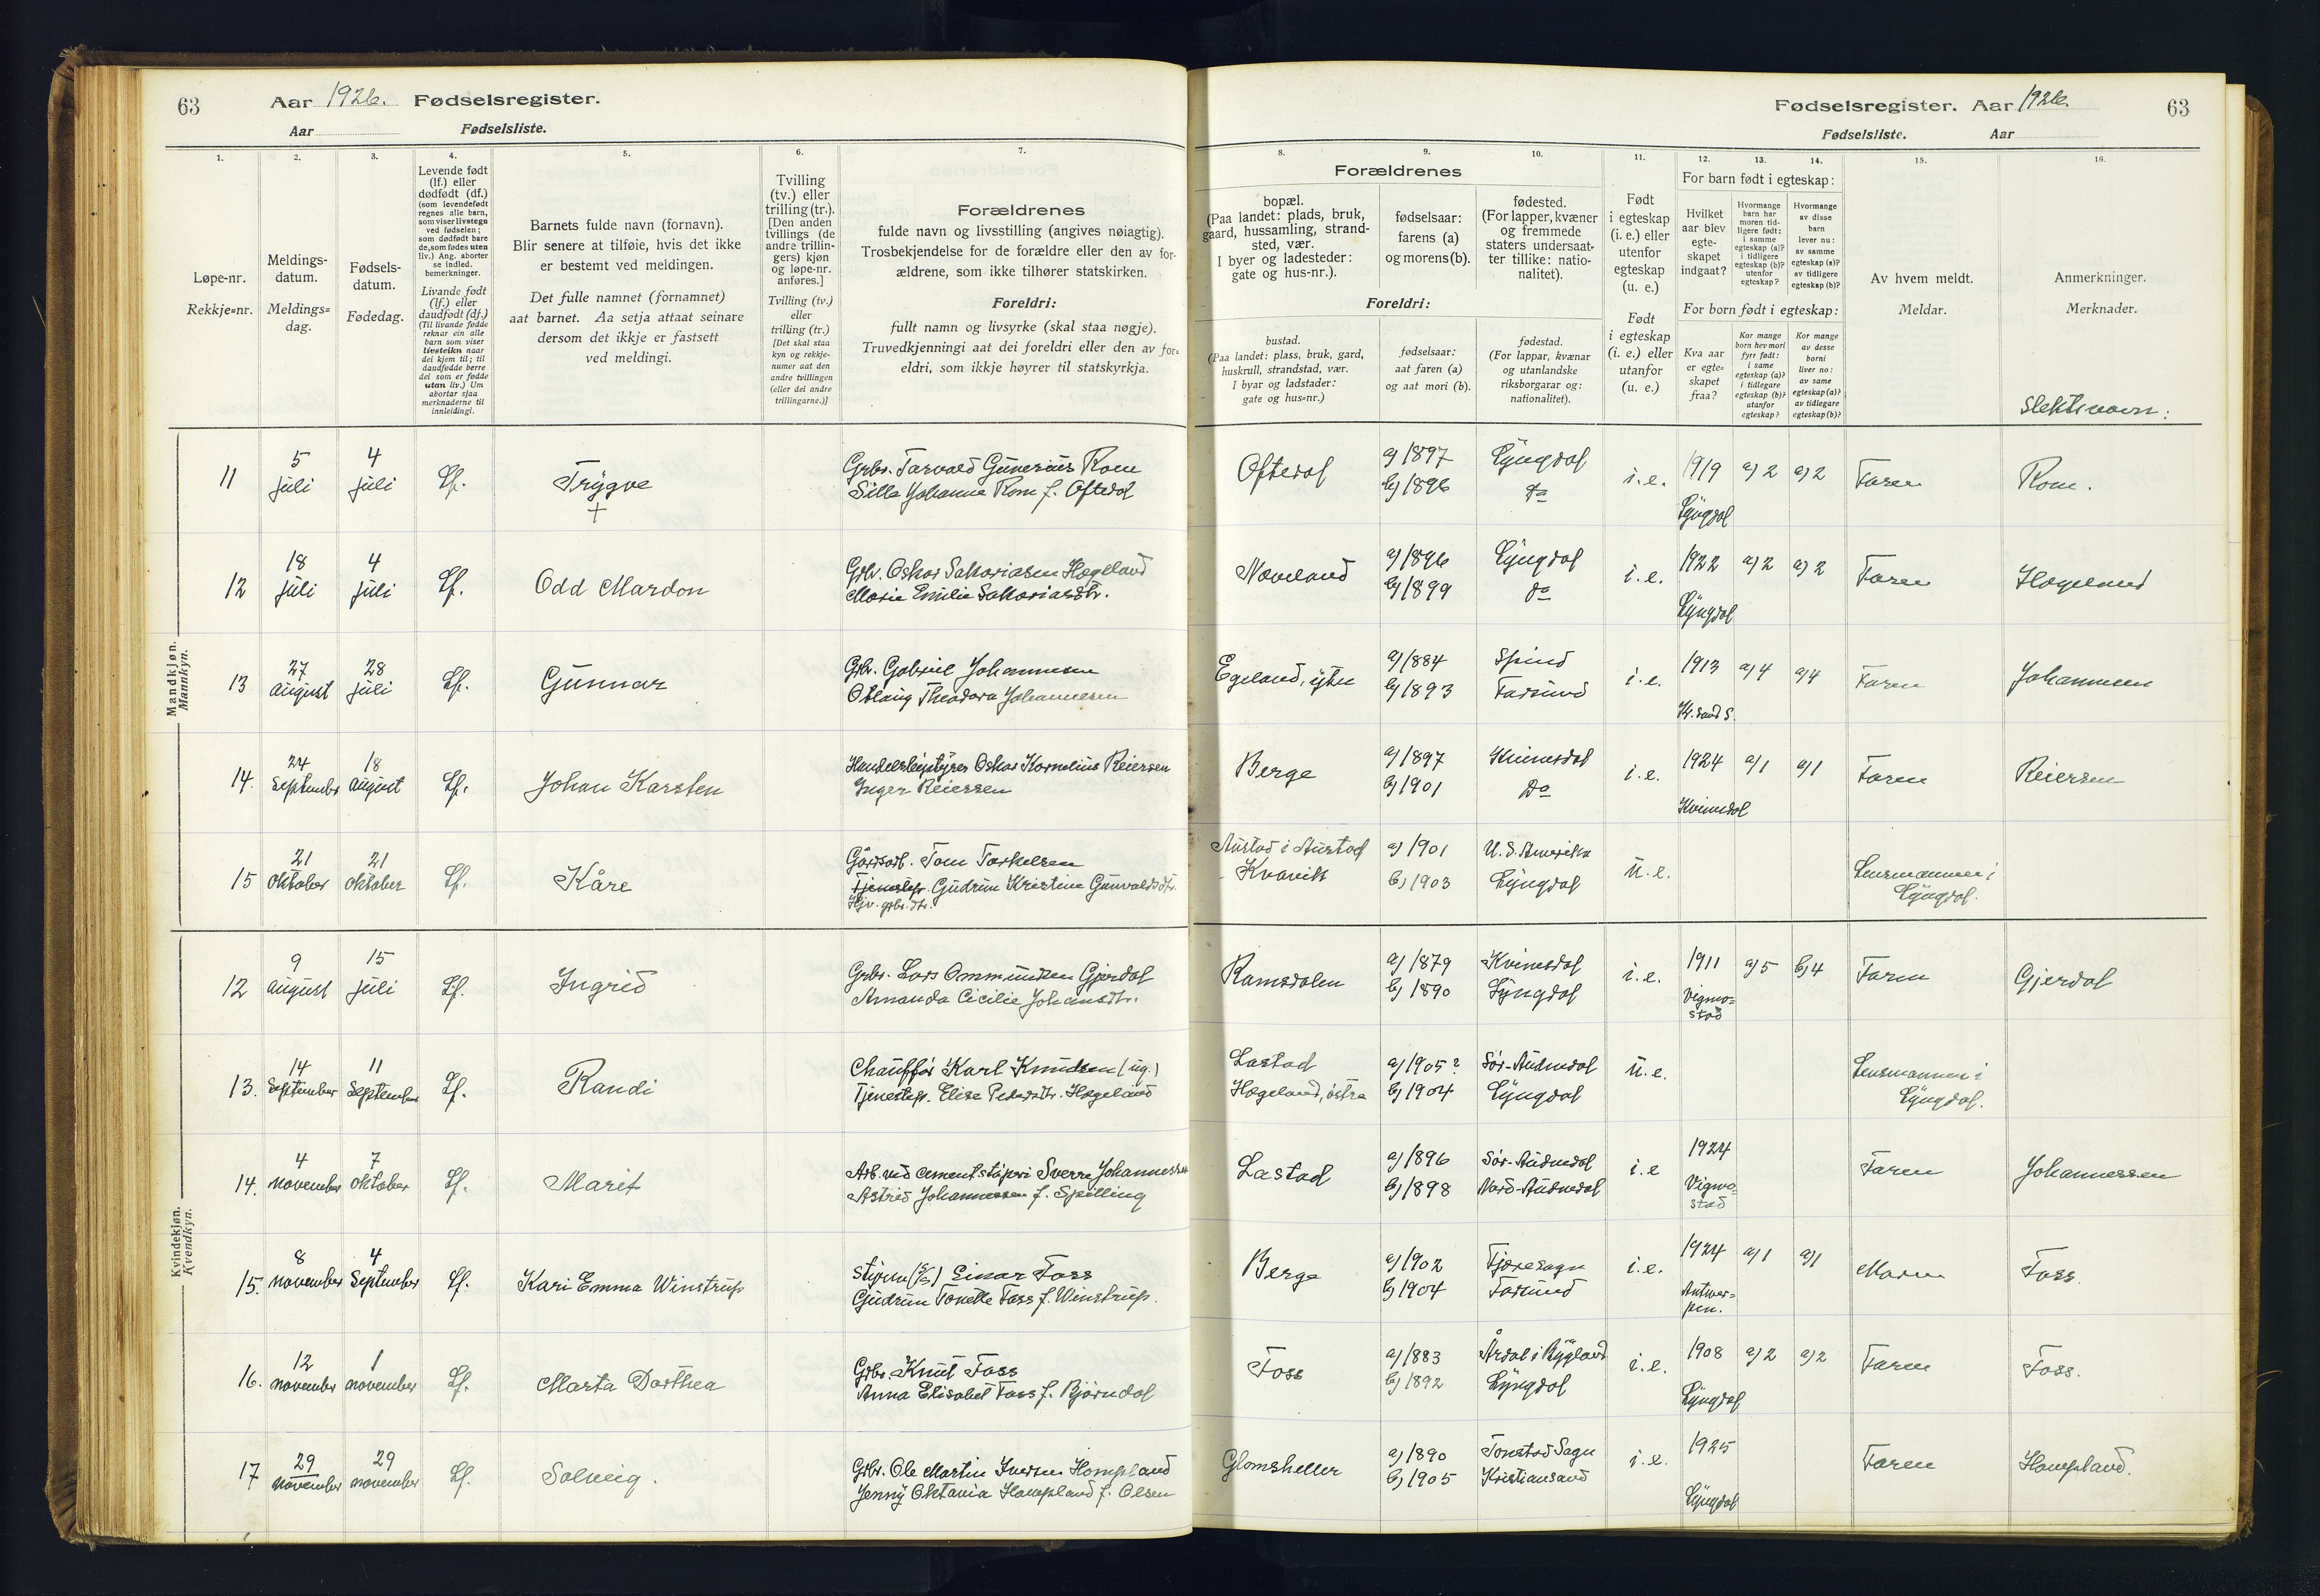 63 Aar 1926. Fødselsregister.
Aar Fødselsliste.
Fødselsregister. Aar 1926. 63
Fødselsliste. Aar
1. 2. 3. 4. 5. 6. 7.
8. 9. 10. 11. 12. 13. 14. 15. 16.
Løpe-nr.
Rekkje=nr.
Meldings-
datum.
Meldings=
dag.
Fødsels-
datum.
Fødedag.
Levende født
(lf.) eller
dødfødt (df.)
(som levendefødt
regnes alle barn,
som viser livstegn
ved fødselen;
som dødfødt bare
de, som fødes uten
liv.) Ang. aborter
se indled.
bemerkninger.
Livande født
(lf.) eller
daudfødt (df.)
(Til livande fødde
reknar ein alle
barn som viser
livsteikn naar
dei kjem til; til
daudfødde berre
dei som er fødde
utan liv.) Um
abortar sjaa
merknaderne til
innleidingi.
Barnets fulde navn (fornavn).
Blir senere at tilføie, hvis det ikke
er bestemt ved meldingen.
Det fulle namnet (fornamnet)
aat barnet. Aa setja attaat seinare
dersom det ikkje er fastsett
ved meldingi.
Tvilling
(tv.) eller
trilling (tr.).
[Den anden
tvillings (de
andre trillin-
gers) kjøn
og løpe-nr.
anføres.]
Tvilling (tv.)
eller
trilling (tr.)
[Det skal staa
kyn og rekkje-
numer aat den
andre tvillingen
(eller dei andre
trillingarne.)]
Forældrenes
fulde navn og livsstilling (angives nøiagtig).
Trosbekjendelse for de forældre eller den av for-
ældrene, som ikke tilhører statskirken.
Foreldri:
fullt namn og livsyrke (skal staa nøgje).
Truvedkjenningi aat dei foreldri eller den av for=
eldri, som ikkje høyrer til statskyrkja.
Forældrenes
bopæl.
(Paa landet: plads, bruk,
gaard, hussamling, strand-
sted, vær.
I byer og ladesteder:
gate og hus-nr.).
fødselsaar:
farens (a)
og morens (b).
fødested.
(For lapper, kvæner
og fremmede
staters undersaat-
ter tillike: natio-
nalitet).
Foreldri:
bustad.
(Paa landet: plass, bruk, gard,
huskrull, strandstad, vær.
I byar og ladstader:
gate og hus=nr.)
fødselsaar:
aat faren (a)
og aat mori (b).
fødestad.
(For lappar, kvænar
og utanlandske
riksborgarar og:
nationalitet).
Født
i egteskap
(i. e.) eller
utenfor
egteskap
(u. e.)
Født
i egteskap
(i. e.) eller
utanfor
(u. e.)
For barn født i egteskap:
Hvilket
aar blev
egte-
skapet
indgaat?
Hvormange
barn har
moren tid-
ligere født:
i samme
egteskap (a)?
i tidligere
egteskap (b)?
utenfor
egteskap?
Hvormange
av disse
barn
lever nu:
av samme
egteskap (a)?
av tidligere
egteskap (b)?
For born født i egteskap:
Kva aar
er egte=
skapet
fraa?
Kor mange
born hev mori
fyrr født:
i same
egteskap (a)?
i tidlegare
egteskap (b)?
utanfor
egteskap?
Kor mange
av desse
borni
liver no:
av same
egteskap (a)?
av tidlegare
egteskap (b)?
Av hvem meldt.
Meldar.
Anmerkninger.
Merknader.
Slektsnavn:
Mandkjøn.
Mannkyn.
11 5 juli 4 juli Lf. Trygve + Grbr. Tarvald Gunerius Rom
Silla Johanne Rom f. Oftedal
Oftedal a) 1897 b) 1896 Lyngdal do i.e. 1919 Lyngdal a) 2 a) 2 Faren Rom.
12 18 juli 4 juli Lf. Odd Mardon Grbr. Oskar Sakariasen Hægeland
Marie Emilie Sakariasdtr.
Nøveland a) 1896 b) 1899 Lyngdal do i.e. 1922 Lyngdal a) 2 a) 2 Faren Hægeland
13 27 august 28 juli Lf. Gunnar Grbr. Gabriel Johannesen
Oslaug Theodora Johannesen
Egeland, ytre a) 1884 b) 1893 Spind Farsund i.e. 1913 Kr.sand S. a) 4 a) 4 Faren Johannesen
14. 24 september 18 august Lf. Johan Karsten Handelsbestyrer Oskar Kornelius Reiersen
Inger Reiersen
Berge a) 1897 b) 1901 Kvinesdal Do i.e. 1924 Kvinesdal a) 1 a) 1 Faren Reiersen
15 21 oktober 21 oktober Lf. Kåre Gårdsarb. Tom Torkelsen
Tjenestep. Gudrun Kristine Gunvaldsdtr.
Hjv. grbr. dtr.
Austad i Austad
Kvavik a) 1901 b) 1903 U. S. Amerika Lyngdal u.e. Lensmannen i
Lyngdal.
Kvindekjøn.
Kvendkyn.
12 9 august 15 juli Lf. Ingrid Grbr. Lars Ommundsen Gjerdal
Amanda Cicilie Johansdtr.
Ramsdalen a) 1879 b) 1890 Kvinesdal Lyngdal i.e. 1911 Vigmo=
stad a) 5 b) 4 Faren Gjerdal
13. 14 september 11 september Lf. Randi Chauffør Karl Knudsen (ug.)
Tjenestep. Elise Pedersdtr. Hægeland
Lastad
Hægeland, østre a) 1905? b) 1904 Sør-Audnedal Lyngdal u.e. Lensmannen i
Lyngdal.
14. 4 november 7 oktober Lf. Marit Arb. ved cementstøperi Sverre Johannessen
Astrid Johannessen f. Spilling
Lastad a) 1896 b) 1898 Sør-Audnedal Nord-Audnedal i.e 1924 Vigmo=
stad Faren Johannessen
15. 8 november 4 september Lf. Kari Emma Winstrup Styrm. (D/S) Einar Foss
Gudrun Tonette Foss f. Winstrup.
Berge a) 1902 b) 1904 Tjøresogn Farsund i.e. 1924 Antwer=
pen. a) 1 a) 1 Moren Foss.
16. 12 november 1 november Lf. Marta Dorthea Grbr. Knut Foss
Anna Elisabet Foss f. Bjørndal
Foss a) 1883 b) 1892 Årdal i Bygland Lyngdal i.e. 1908 Lyngdal a) 2 a) 2 Faren Foss.
17 29 november 29 november Lf. Solveig. Grbr. Ole Martin Iversen Hompland
Jenny Oktavia Hompland f. Olsen
Glomsheller a) 1890 b) 1905 Tonstad Sogn Kristiansand i.e. 1925 Lyngdal Faren Hompland.